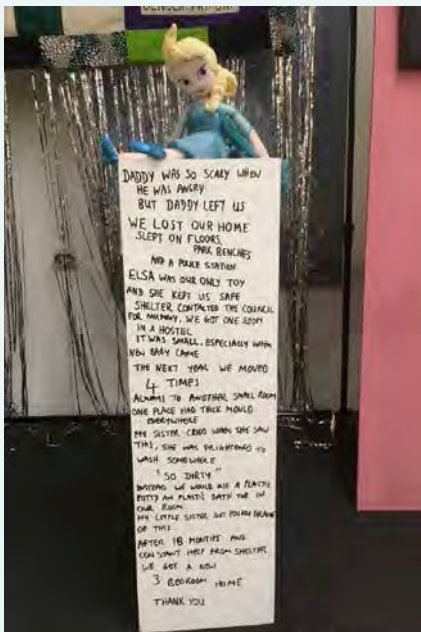 DADDY WAS SO SCARY WHEN
HE WAS ANGRY
BUT DADDY LEFT US
WE LOST OUR HOME
SLEPT ON FLOORS,
PARK BENCHES
AND A POLICE STATION
ELSA WAS OUR ONLY TOY
AND SHE KEPT US SAFE
SHELTER CONTACTED THE COUNCIL
FOR MUMMY. WE GOT ONE ROOM
IN A HOSTEL
IT WAS SMALL, ESPECIALLY WHEN
NEW BABY CAME
THE NEXT YEAR WE MOVED
4 TIMES
ALWAYS TO ANOTHER SMALL ROOM
ONE PLACE HAD THICK MOULD
EVERYWHERE
MY SISTER CRIED WHEN SHE SAW
THIS, SHE WAS FRIGHTENED TO
WASH SOMEWHERE
"SO DIRTY"
INSTEAD WE WOULD USE A PLASTIC
POTTY AN PLASTIC BATH TUB IN
OUR ROOM
MY LITTLE SISTER GOT
OF THIS
AFTER 18 MONTHS AND
CONSTANT HELP FROM SHELTER
WE GOT A NEW
3 BEDROOM HOME
THANK YOU